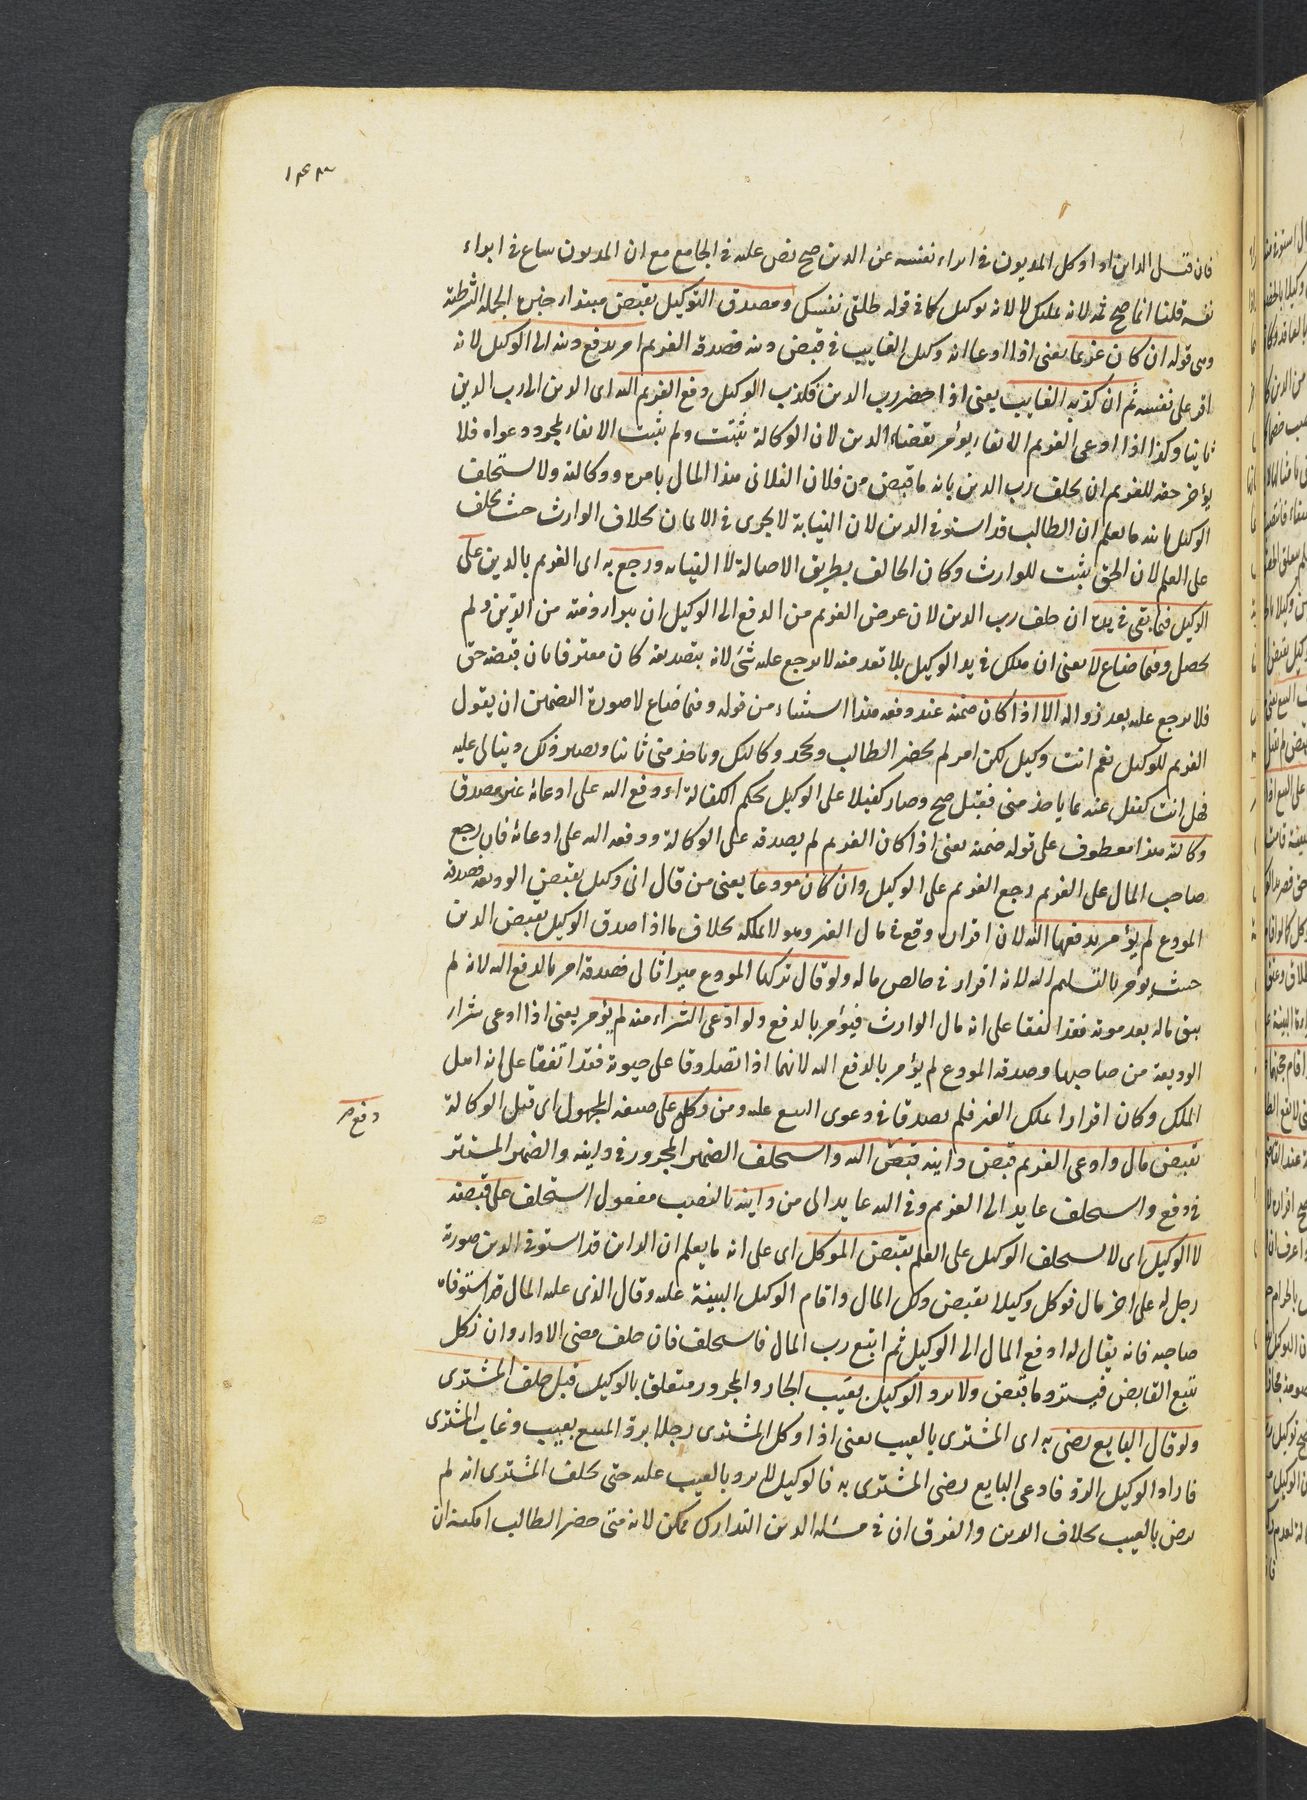 ١٤٣
فان قيل الداين اذا وكل المديون في ابراء نفسه عن الدين صح نص عليه في الجامع مع ان المديون ساع في ابراء
نفسه قلنا انما صح ثمه لانه تمليك لا لانه توكيل كما في قوله طلقي نفسك ومصدق التوكيل بقبض مبتدا خبره الجملة الشرطية
وهي قوله ان كان غريما يعني اذا ادعا انه وكيل الغايب في قبض دينه فصدقه الغريم امر بدفع دينه الى الوكيل لانه
اقر على نفسه ثم ان كذبه الغايب يعني اذا حضر رب الدين فكذب الوكيل دفع الغريم اليه اى الدين الى رب الدين
ثانيا وكذا اذا ادعى الغريم الايفاء يؤمر بقضاء الدين لان الوكالة ثبتت ولم يثبت الايفاء بمجرد دعواه فلا
يؤخر حقه للغريم ان يحلف رب الدين بانه ما قبض من فلان الفلانى هذا المال بامره ووكالته ولا يستحلف
الوكيل بالله ما يعلم ان الطالب قد استوفى الدين لان النيابة لا تجرى في الايمان بخلاف الوارث حيث يحلف
على العلم لان الحق يثبت للوارث وكان الحالف بطريق الاصالة لا النيابة ورجع به اى الغريم بالدين على
الوكيل فيما بقى في يده ان حلف رب الدين لان غرض الغريم من الدفع الى الوكيل ان يبراء ذمته من الدين ولم
يحصل وفيما ضاع لا يعني ان هلك في يد الوكيل بلا تعد منه لا يرجع عليه شئ لانه بتصديقه كان معترفا بان قبضه حق
فلا يرجع عليه بعد زواله الا اذا كان ضمنه عند دفعه هذا استثناء من قوله وفيما ضاع لا صورة التضمين ان يقول
الغريم للوكيل نعم انت وكيل لكن امر لم يحضر الطالب ويجحد وكالتك وياخذ منى ثانيا ويصير ذلك دينا لى عليه
فهل انت كفيل عنه بما ياخذ منى فقبل صح وصار كفيلا على الوكيل بحكم الكفالة او دفع اليه على ادعائه غير مصدق
وكالته هذا معطوف على قوله ضمنه يعني اذا كان الغريم لم يصدقه على الوكالة ودفعه اليه على ادعائه فان رجع
صاحب المال على الغريم رجع الغريم على الوكيل وان كان مودعا يعني من قال انى وكيل بقبض الوديعة فصدقه
المودع لم يؤمر بدفعها اليه لان اقراره وقع في مال الغير وهو لا يملكه بخلاف ما اذا صدق الوكيل بقبض الدين
حيث يؤمر بالتسليم اليه لانه اقرار في خالص ماله ولو قال تركها المودع ميراثا لى فصدقه امر بالدفع اليه لانه لم
يبق ماله بعد موته فقد اتفقا على انه مال الوارث فيؤمر بالدفع ولو ادعى الشراء منه لم يؤمر يعني اذا ادعى شراء
الوديعة من صاحبها وصدقه المودع لم يؤمر بالدفع اليه لانهما اذا تصادقا على حيوته فقد اتفقا على انه اهل
الملك وكان اقرارا بملك الغير فلم يصدقا في دعوى البيع عليه ومن وكل على صيغة المجهول اى قبل الوكالة
دفع صح
بقبض مال وادعى الغريم قبض داينه قبض اليه واستحلف الضمير المجرور في داينه والضمير المستتر
في دفع واستحلف عايد الى الغريم وفي اليه عايد الى من داينه بالنصب مفعول استحلف على قبضه
لا الوكيل اى لا يستحلف الوكيل على العلم بقبض الموكل اى على انه ما يعلم ان الداين قد استوفى الدين صورته
رجل له على اخر مال فوكل وكيلا بقبض وكل المال واقام الوكيل البينة عليه وقال الذى عليه المال قد استوفاه
صاحبه فانه يقال له ادفع المال الى الوكيل ثم اتبع رب المال فاستحلف فان حلف مضى الاداء وان نكل
يتبع القابض فيسترد ما قبض ولا يرد الوكيل بعيب الجار والمجرور متعلق بالوكيل قبل حلف المشترى
ولو قال البايع رضى به اى المشترى بالعيب يعني اذا وكل المشترى رجلا برد المبيع بعيب وغاب المشترى
فاراد الوكيل الرد فادعى البايع رضى المشترى به فالوكيل لا يرد بالعيب عليه حتى يحلف المشترى انه لم
يرض بالعيب بخلاف الدين والفرق ان في مسئلة الدين التدارك ممكن لانه متى حضر الطالب امكنه ان